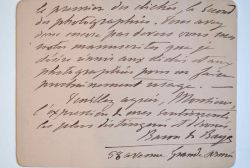 le premier des clichés, le second
des photographies. Vous avez
donc encore par devers vous mes
notes manuscrites que je
désire ravoir ainsi clichés et
photographies pour en faire
prochainement usage.
Veuillez agréer, Monsieur,
l'expression de mes sentiments
les plus distingués
Baron de Baye
58 avenue Grande Armée